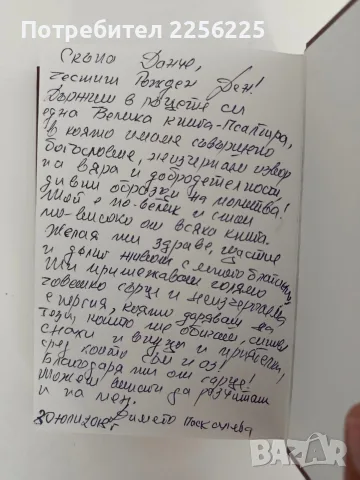 Позвънете на 2256225
Скъпа Данче,
честит Рожден Ден!
Държиш в ръцете си
една Велика книга-Псалтира,
в която имаме съвършено
богословие, неизчерпаем извор
на вяра и добродетелност
дивни образци на молитва!
Той е по-велик и стои
по-високо от всяка книга.
Желая ти здраве, щастие
и дълъг живот с много
Ти притежаваш голямо
човешко сърце и неизчерпаема
енергия, която даряваш на
тези които те обичат,
снахи и внуци и приятели,
сред които съм и аз!
Благодаря ти от сърце!
Можеш винаги да разчиташ
и на мен.
30 юли
bazar